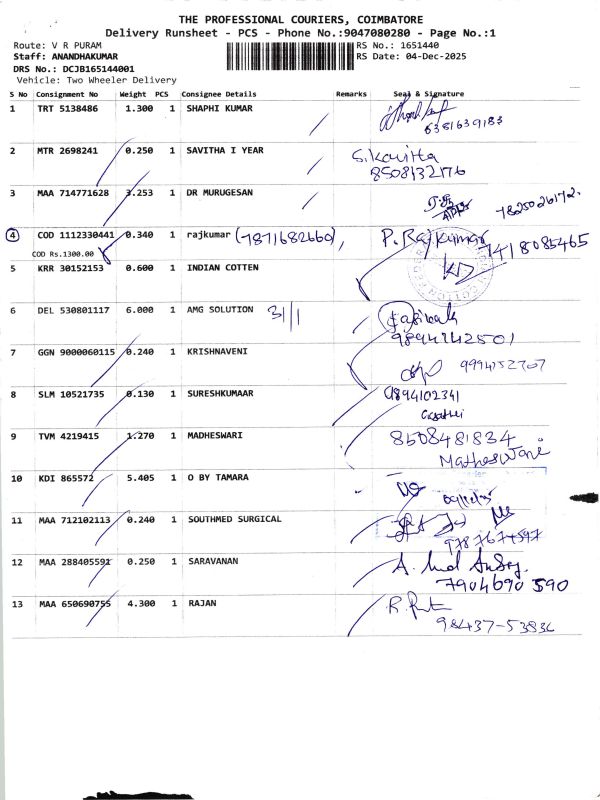 THE PROFESSIONAL COURIERS, COIMBATORE
Delivery Runsheet - PCS - Phone No.:9047080280 - Page No.:1
Route: V R PURAM RS No.: 1651440
Staff: ANANDHAKUMAR RS Date: 04-Dec-2025
DRS No.: DCJB165144001
Vehicle: Two Wheeler Delivery
S No Consignment No Weight PCS Consignee Details Remarks Seal & Signature
1 TRT 5138486 1.300 1 SHAPHI KUMAR
6381639183
2 MTR 2698241 0.250 1 SAVITHA I YEAR S. Kavitha
8508132176
3 MAA 714771628 3.253 1 DR MURUGESAN 7825026172.
4 COD 1112330441 0.340 1 rajkumar (7871682660), P. Rajkumar
COD Rs.1300.00 7418085465
5 KRR 30152153 0.600 1 INDIAN COTTEN
6 DEL 530801117 6.000 1 AMG SOLUTION 31/1
9894142501
7 GGN 9000060115 0.240 1 KRISHNAVENI 9994152707
8 SLM 10521735 0.130 1 SURESHKUMAAR 9894102341
9 TVM 4219415 1.270 1 MADHESWARI 8508481834
10 KDI 865572 5.405 1 O BY TAMARA
11 MAA 712102113 0.240 1 SOUTHMED SURGICAL
9787674597
12 MAA 288405591 0.250 1 SARAVANAN
7904690590
13 MAA 650690755 4.300 1 RAJAN
98437-53836